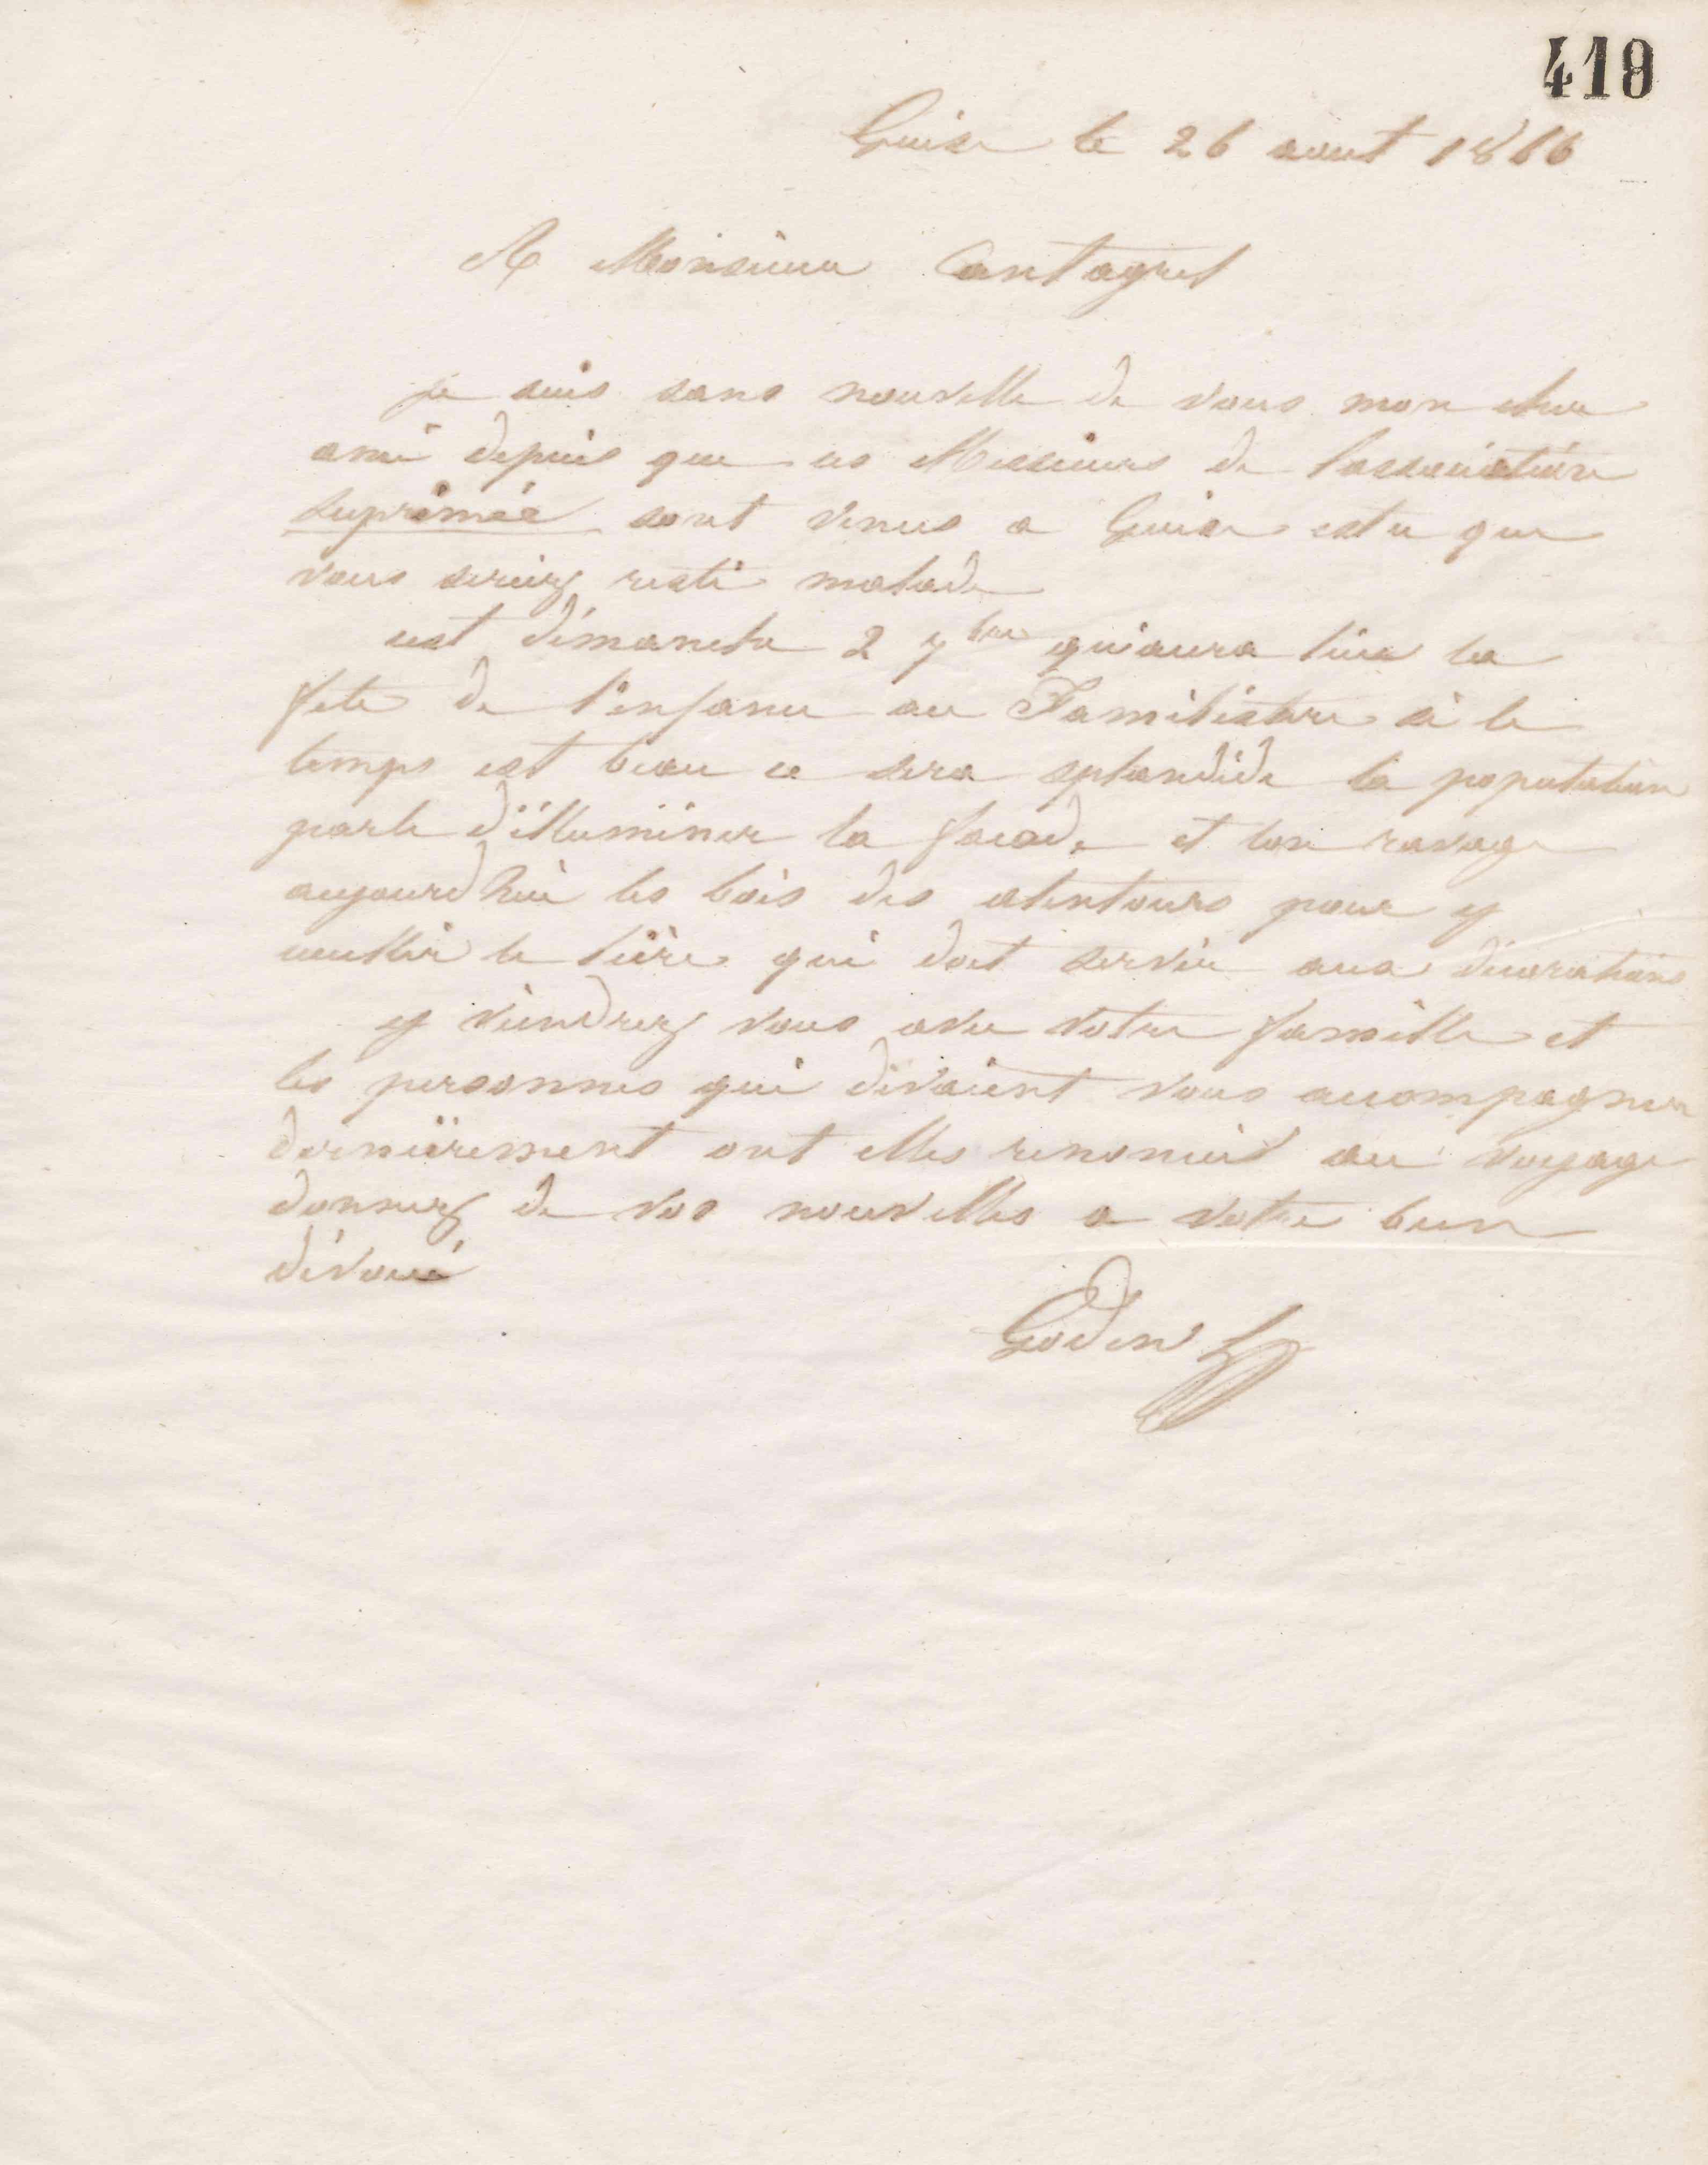 419
Guise le 26 aout 1866
A Monsieur Cantagrel
je suis sans nouvelle de vous mon cher
ami depuis que ces Messieurs de lassociation
suprimée sont venus a Guise est ce que
vous seriez resté malade
cest dimanche 2 7bre qui aura lieu la
fete de l'enfance au Familistere si le
temps est beau ce sera splandide la population
parle d'illuminer la facade et lon ravage
aujourdhui les bois des alentours pour y
ceuillir le lière qui doit servir aux décorations
y viendrez vous avec votre famille et
les personnes qui devaient vous accompagner
dernièrement ont elles renoncé au voyage
donnez de vos nouvelles a votre bien
dévoué
Godin